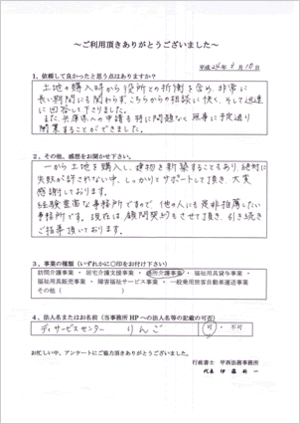 ～ご利用頂きありがとうございました～
平成24年 月10日
1、依頼して良かったと思う点はありますか？
土地の購入時から役所との折衝を含め、非常に
長い期間にも関わらず、こちらからの相談に快く、そして迅速
に回答して下さりました。
また、兵庫県への申請も特に問題なく無事に予定通り
開業することができました。
2、その他、感想をお聞かせ下さい。
一から土地を購入し、建物を新築することもあり、絶対に
失敗が許されない中、しっかりとサポートして頂き、大変
感謝しております。
経験豊富な事務所ですので、他の人にも是非推薦したい
事務所です。現在は、顧問契約もさせて頂き、引き続き
ご指導頂いております。
3、事業の種類（いずれかに〇印をお付け下さい）
訪問介護事業・居宅介護支援事業・通所介護事業・福祉用具貸与事業・
福祉用具販売事業・障害福祉サービス事業・一般乗用旅客自動車運送事業
その他（　　　）
4、法人名またはお名前（当事務所HPへの法人名等の記載の可否）
デイサービスセンター りんご
可・不可
お忙しい中、アンケートにご協力頂きありがとうございました。
行政書士 甲西法務事務所
代表 伊藤